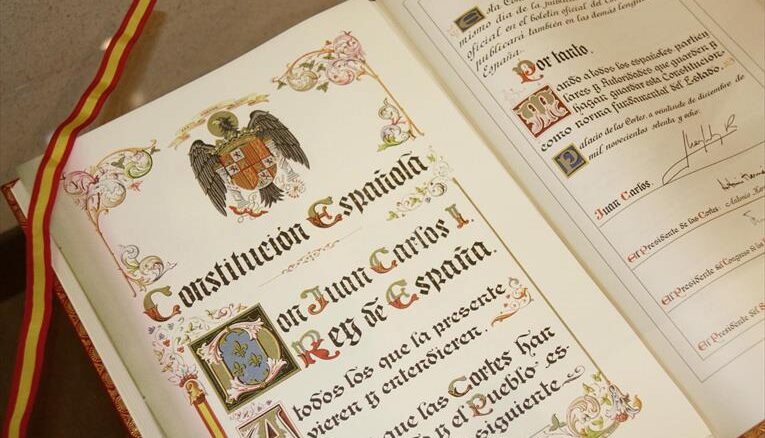 Constitución Española
Don Juan Carlos I,
Rey de España.
A todos los que la presente
vieren y entendieren.
que las Cortes han
y el Pueblo es-
siguiente
esta Co
mismo día de la
oficial en el boletín oficial del
publicará también en las demás lengu
España.
Por tanto,
Mando a todos los españoles particu
lares y Autoridades que guarden y
hagan guardar esta Constitución
como norma fundamental del Estado.
Palacio de las Cortes, a veintisiete de diciembre de
mil novecientos setenta y ocho.
Juan Carlos.
El Presidente de las Cortes.- Antonio
El Presidente del Congreso de
El Presidente del